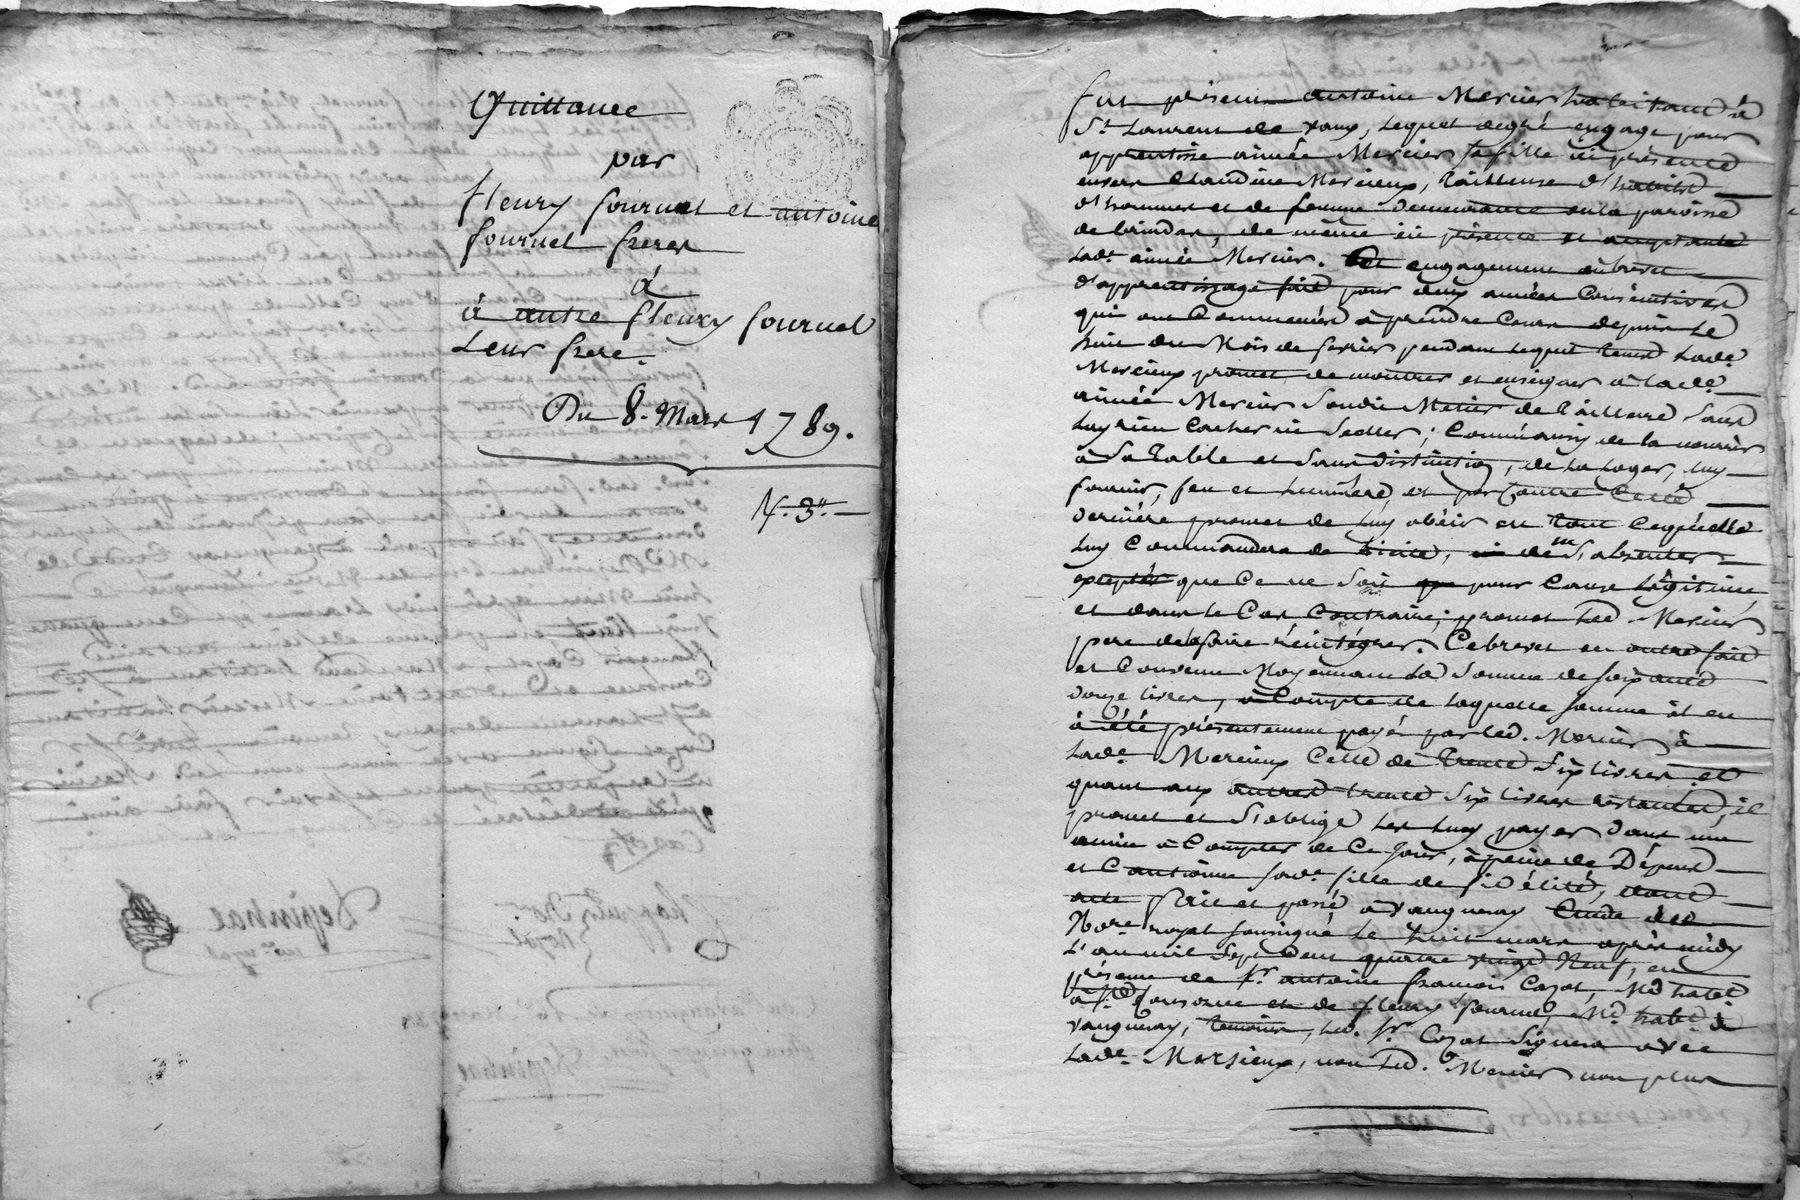 Quittance
par
fleury fournel et antoine
fournel freres
à
à autre fleury fournel
Leur frere
Du 8. Mars 1789.
fut présent antoine Mercier habitand à
St. Laurent de vaux, Lequel degré engage pour
apprentisse aimée Mercier sa fille ici présente
envers Claudine Mercieux, tailleuse d'habits
d'hommes et de femme demeurante en la paroisse
de brindas, de même ici présente et acceptante
Lade. aimée Mercier. Cet engagement ou brevet
d'apprentissage fait pour deux années Consécutives
qui ont Commencées à prendre Cours depuis Le
huit du Mois de fevrier pendant Lequel tems Lade.
Mercieux promet de montrer et enseigner à lade.
aimée Mercier Sondit Metier de tailleuse Sans
Luy rien Cacher ni Seller; Comm'aussy de la nourrir
à Sa table et Sans distinction, de La Loger, luy
fournir, feu et Lumiére, et par Contre Cette
derniére promet de Luy obéir en tout Cequ'elle
Luy Commandera de Licite, de m S'absenter
exceptés que Ce ne Soit pour Cause Légitime,
et dans le Cas Contraire, promet Led. Mercier
pere de la faire réintégrer. Ce brevet en outre fait
et Convenu Moyennant La Somme de Soixante
douze livres, à Compte de Laquelle Somme il en
à été présentement payé par led. Mercier à
Lade. Mercieux Celle de trente Six livres et
quant aux autres trente Six livres restantes, il
promet et S'oblige Les Luy payer dans une
année à Compter de Ce Jour, à peine de Dépens
et Cautionne Sade. fille de fidélité, dont
acte fait et passé à vaugneray Etude du
Nore. royal soussigné Le huit mars après midy
L'an mil Sept Cent quatre vingt Neuf, en
présence de Sr. antoine françois Cazot, Md habt
à fourvonne et de fleury fournel, Md. habt. à
vaugneray, temoins, Led. Sr. Cazot Signera avec
Lade. Mersieux, non Led. Mercier non plus